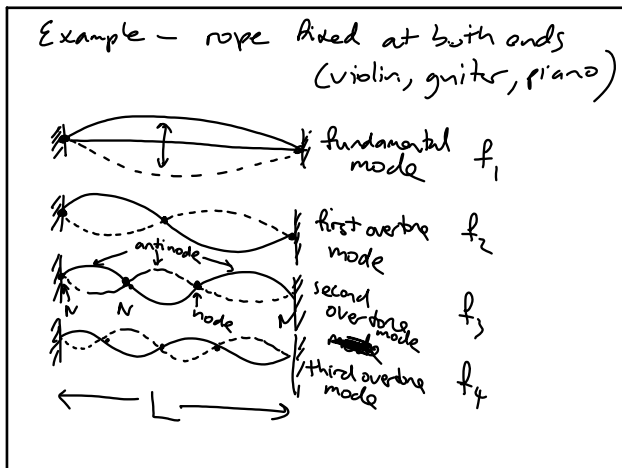 Example - rope fixed at both ends
(violin, guitar, piano)
fundamental
mode f1
first overtone
mode f2
antinode
N N node N
second
overtone mode f3
third overtone
mode f4
L